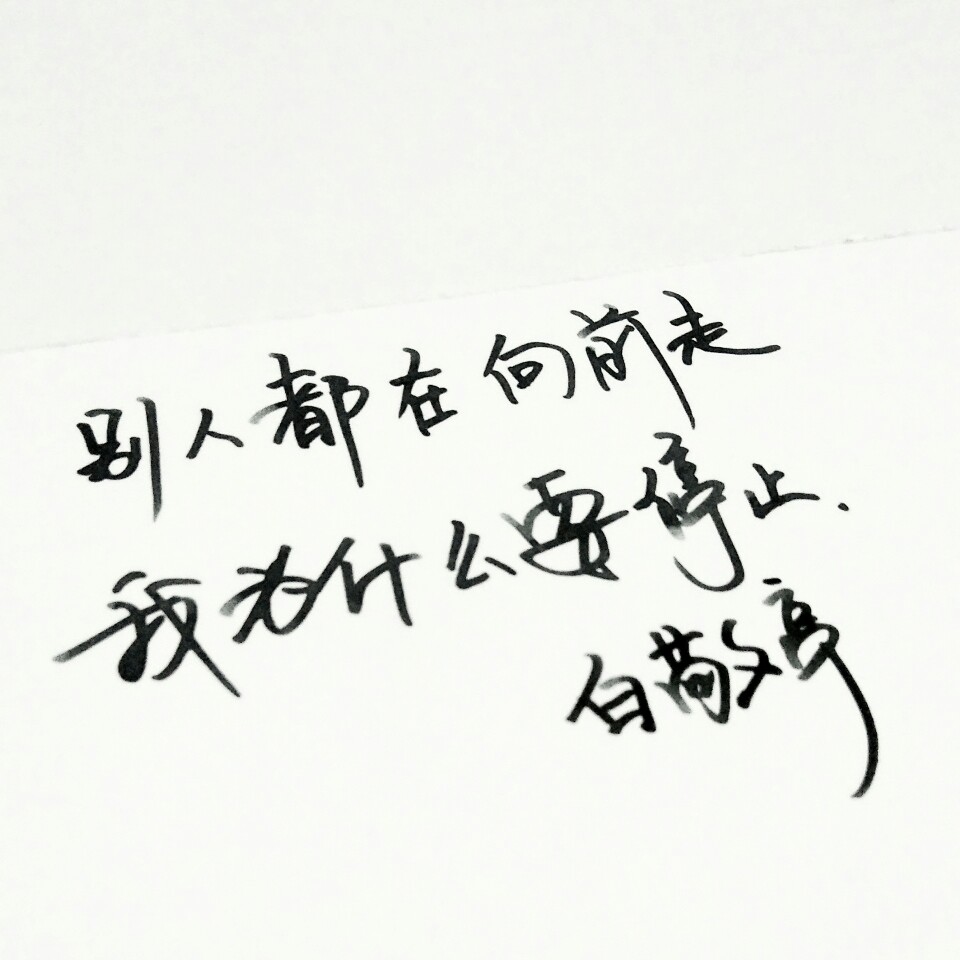 别人都在向前走
我为什么要停止.
白敬亭